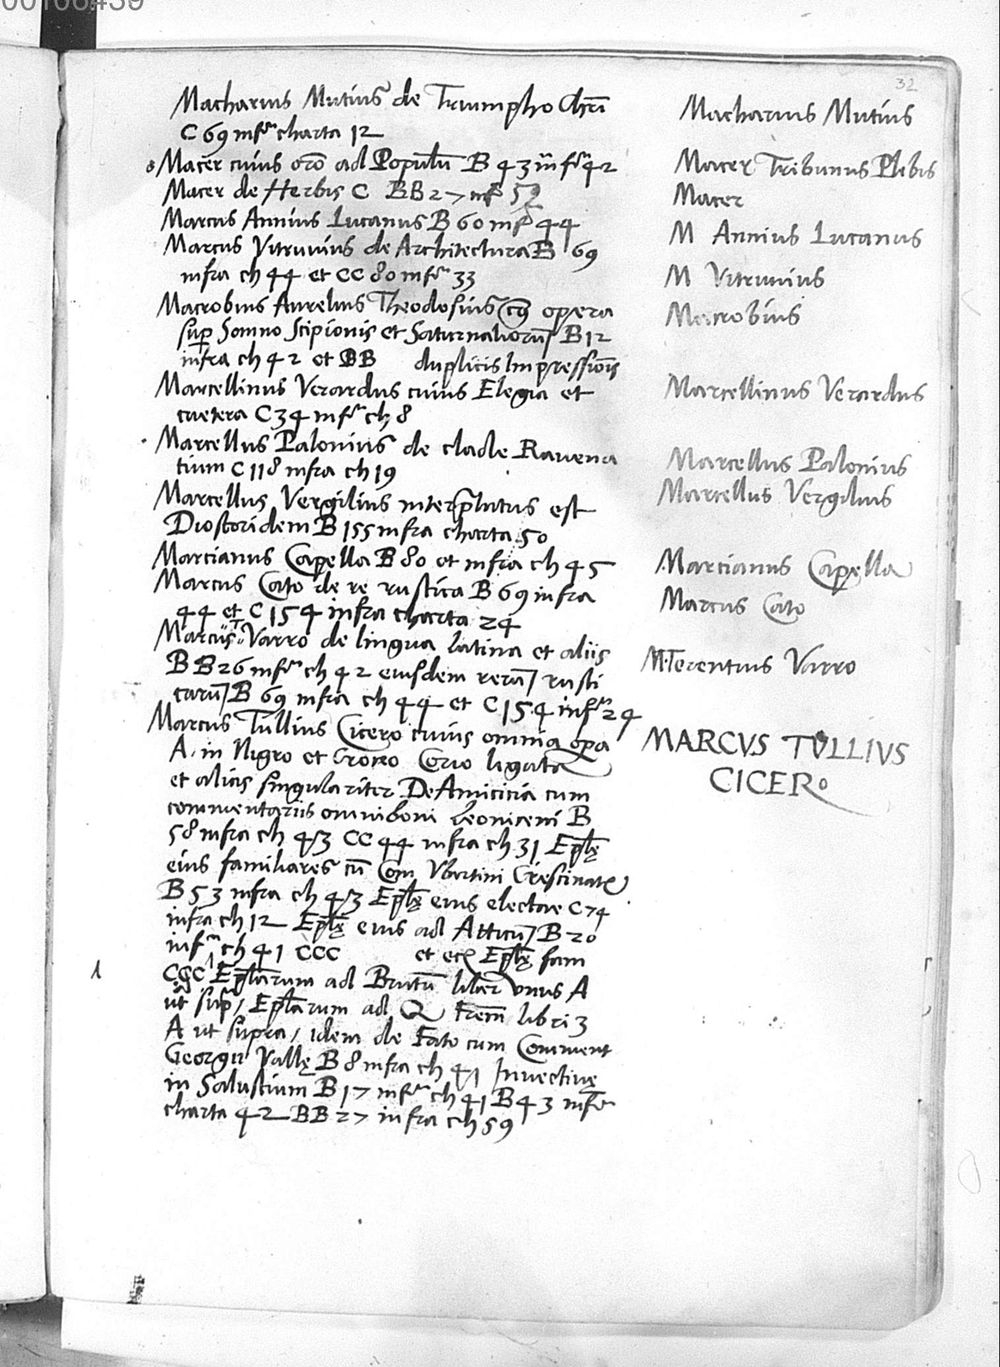 00106439
32
Macharius Mutius de Triumpho Chri
C 69 infra charta 12
Macer cuius oro ad Populu B 43 infra 42
Macer de Herbis C BB 27 inf 59
Marcus Annius Lucanus B 60 infra 44
Marcus Vitruuius de Architectura B 69
infra ch 44 et CC 80 infra 33
Macrobius Aurelius Theodosius cuius opera
sup Somno Scipionis et Saturnaliorum B 12
infra ch 42 et BB duplicis Impressionis
Marcellinus Verardus cuius Elegia et
caetera C 34 infra ch 8
Marcellus Palonius de clade Rauena
tium C 118 infra ch 19
Marcellus Vergilius interpretatus est
Dioscoridem B 155 infra charta 50
Marcianus Capella B 80 et infra ch 45
Marcus Cato de re rustica B 69 infra
44 et C 154 infra charta 24
Marcus T Varro de lingua latina et aliis
BB 26 infra ch 42 eiusdem rerum rusti
carum B 69 infra ch 44 et C 154 infra 24
Marcus Tullius Cicero cuius omnia opa
A in Nigro et Croceo Corio ligata
et alias singulariter De Amicicia cum
commentariis omniboni leoniceni B
58 infra ch 43 CC 44 infra ch 31 Eplę
eius familiares cu Com Vbertini Crescinatis
B 53 infra ch 43 Eplę eius electae C 74
infra ch 12 Eplę eius ad Atticum B 20
infra ch 41 CCC et Eplę fam
CCC Eplarum ad Brutu liber vnus A
ut sup, Eplarum ad Q frem libri 3
A ut supra, idem de Fato cum Comment
Georgii Vallę B 8 infra ch 41 Inuectiuę
in Salustium B 17 infra ch 41 B 43 infra
charta 42 BB 27 infra ch 59
Macharius Mutius
Macer Tribunus Plebis
Macer
M Annius Lucanus
M Vitruuius
Macrobius
Marcellinus Verardus
Marcellus Palonius
Marcellus Vergilius
Marcianus Capella
Marcus Cato
M. Terentius Varro
MARCVS TVLLIVS
CICERO